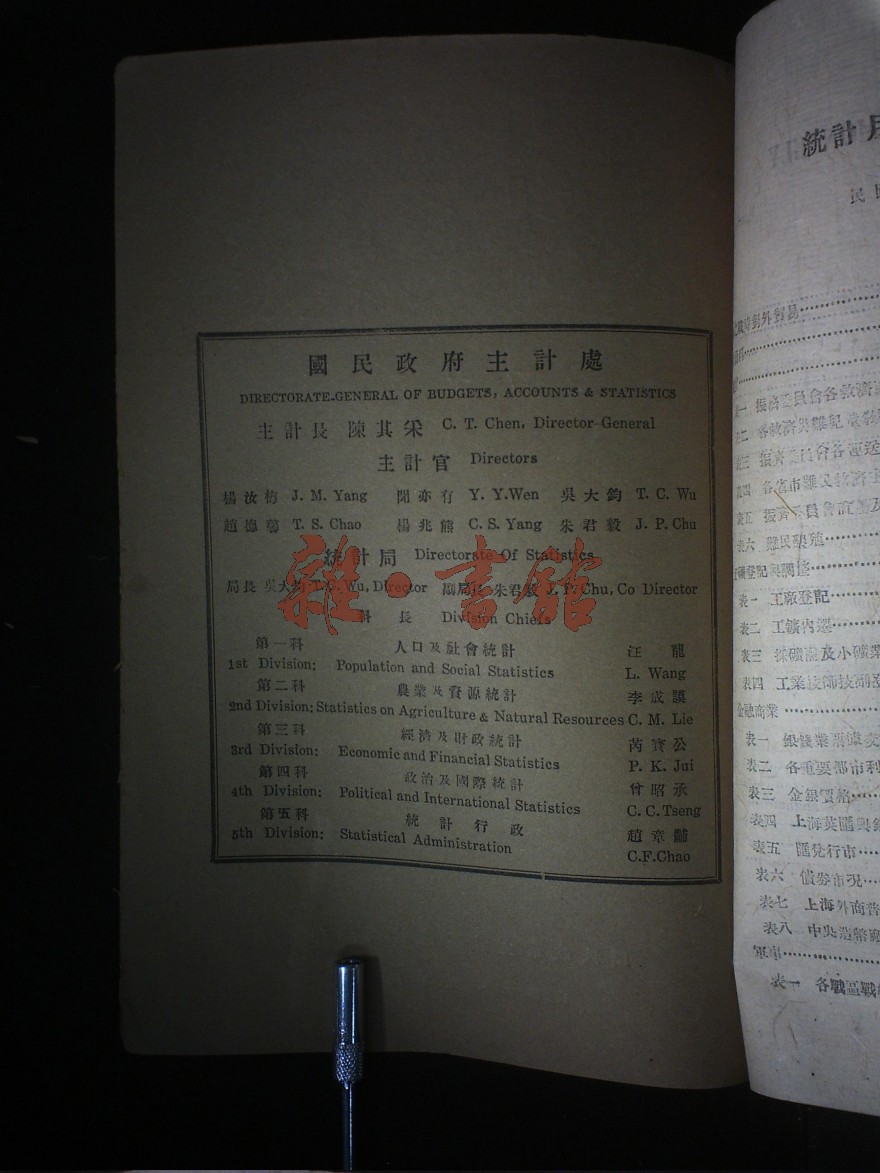 國民政府主計處
DIRECTORATE-GENERAL OF BUDGETS, ACCOUNTS & STATISTICS
主計長 陳其采 C. T. Chen, Director-General
主計官 Directors
楊汝梅 J. M. Yang 聞亦有 Y. Y. Wen 吳大鈞 T. C. Wu
趙德馨 T. S. Chao 楊兆熊 C. S. Yang 朱君毅 J. P. Chu
統計局 Directorate Of Statistics
局長 吳大鈞 T. C. Wu, Director 副局長 朱君毅 J. P. Chu, Co Director
科長 Division Chiefs
第一科 人口及社會統計 汪龍
1st Division: Population and Social Statistics L. Wang
第二科 農業及資源統計 李成謨
2nd Division: Statistics on Agriculture & Natural Resources C. M. Lie
第三科 經濟及財政統計 芮寶公
3rd Division: Economic and Financial Statistics P. K. Jui
第四科 政治及國際統計 曾昭承
4th Division: Political and International Statistics C. C. Tseng
第五科 統計行政 趙章黼
5th Division: Statistical Administration C.F.Chao
雜·書館
統計月
民國
對外貿易
表一 振濟委員會各救濟
表二 各救濟
表三 振濟委員會各運送
表四 各省市難民救濟
表五 振濟委員會
表六 難民墾殖
登記與調整
表一 工廠登記
表二 工鑛內遷
表三 採礦
及小礦業
表四 工業技師技副
金融商業
表一 銀錢業
表二 各重要都市利
表三 金銀價格
表四 上海英匯與
表五 匯兌行市
表六 債券市況
表七 上海外商
表八 中央造幣廠
軍事
表一 各戰區戰